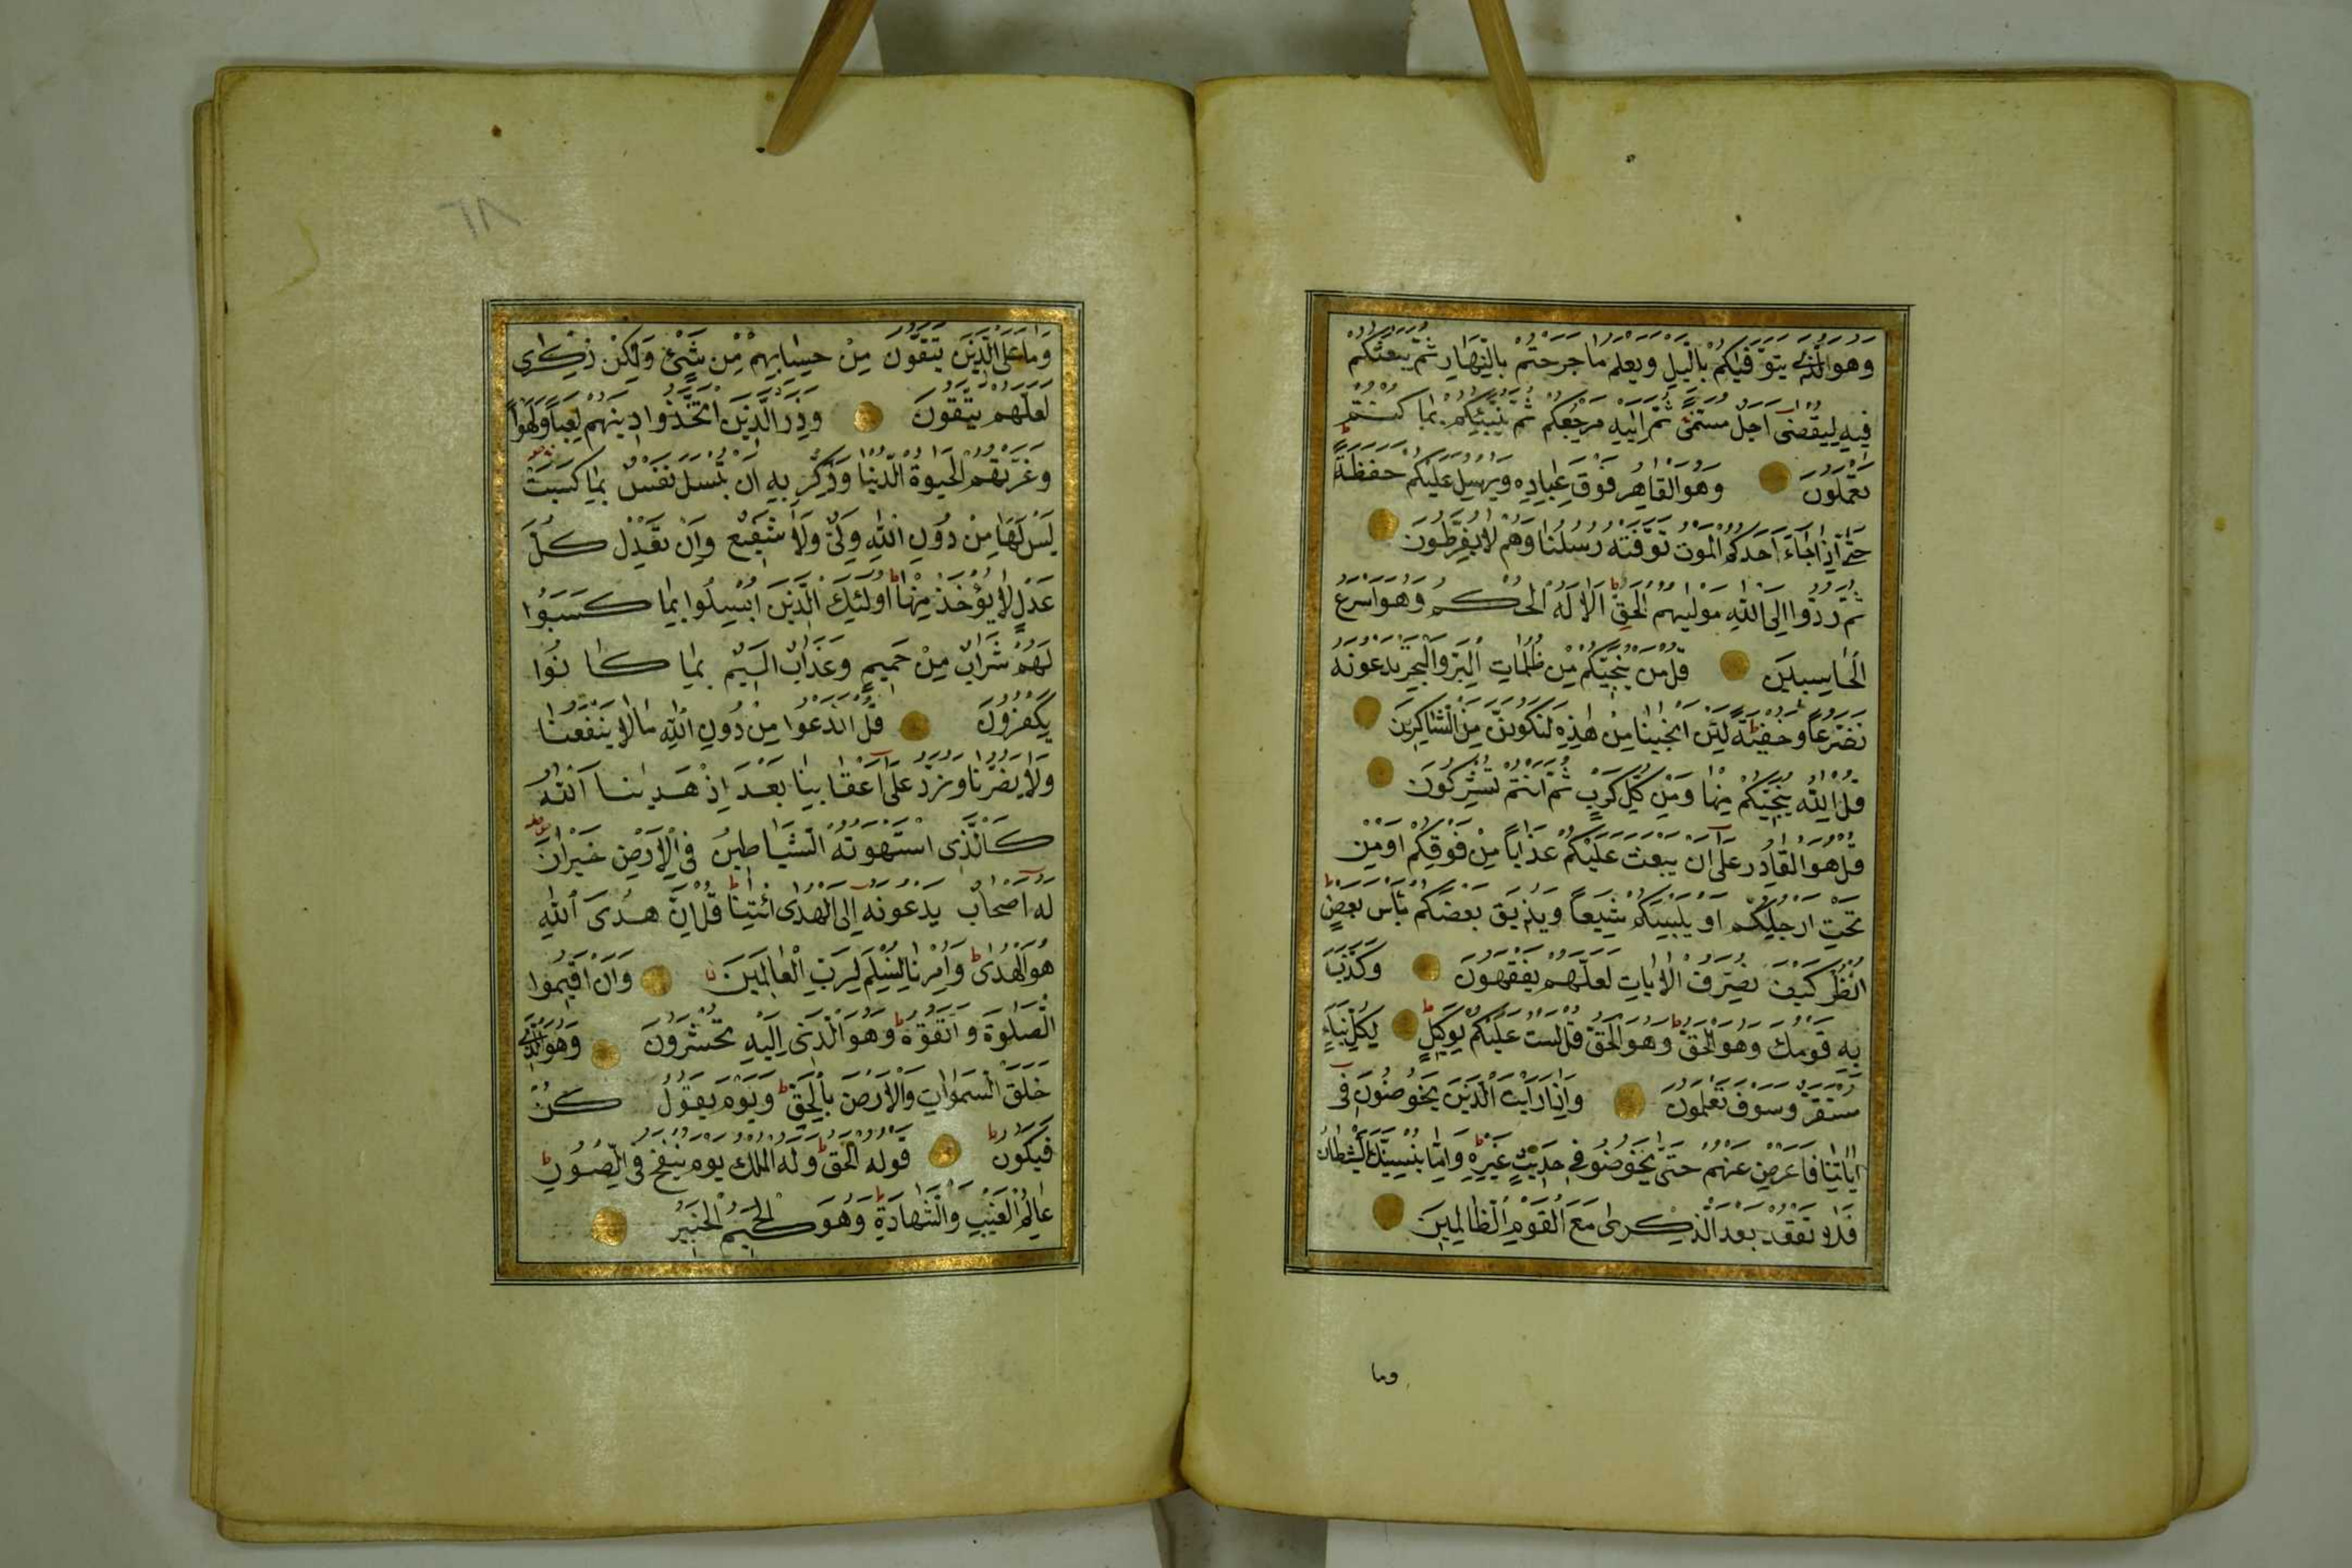 وَهُوَ الَّذِي يَتَوَفّٰيكُمْ بِالَّيْلِ وَيَعْلَمُ مَا جَرَحْتُمْ بِالنَّهَارِ ثُمَّ يَبْعَثُكُمْ
فِيهِ لِيُقْضٰى اَجَلٌ مُسَمًّى ثُمَّ اِلَيْهِ مَرْجِعُكُمْ ثُمَّ يُنَبِّئُكُمْ بِمَا كُنْتُمْ
تَعْمَلُونَ وَهُوَ الْقَاهِرُ فَوْقَ عِبَادِهِ وَيُرْسِلُ عَلَيْكُمْ حَفَظَةً
حَتّٰى اِذَا جَاءَ اَحَدَكُمُ الْمَوْتُ تَوَفَّتْهُ رُسُلُنَا وَهُمْ لَا يُفَرِّطُونَ
ثُمَّ رُدُّوا اِلَى اللّٰهِ مَوْلٰيهُمُ الْحَقِّ ط اَلَا لَهُ الْحُكْمُ وَهُوَ اَسْرَعُ
الْحَاسِبِينَ قُلْ مَنْ يُنَجِّيكُمْ مِنْ ظُلُمَاتِ الْبَرِّ وَالْبَحْرِ تَدْعُونَهُ
تَضَرُّعًا وَخُفْيَةً لَئِنْ اَنْجٰينَا مِنْ هٰذِهِ لَنَكُونَنَّ مِنَ الشَّاكِرِينَ
قُلِ اللّٰهُ يُنَجِّيكُمْ مِنْهَا وَمِنْ كُلِّ كَرْبٍ ثُمَّ اَنْتُمْ تُشْرِكُونَ
قُلْ هُوَ الْقَادِرُ عَلٰى اَنْ يَبْعَثَ عَلَيْكُمْ عَذَابًا مِنْ فَوْقِكُمْ اَوْ مِنْ
تَحْتِ اَرْجُلِكُمْ اَوْ يَلْبِسَكُمْ شِيَعًا وَيُذِيقَ بَعْضَكُمْ بَأْسَ بَعْضٍ ط
اُنْظُرْ كَيْفَ نُصَرِّفُ الْاٰيَاتِ لَعَلَّهُمْ يَفْقَهُونَ وَكَذَّبَ
بِهِ قَوْمُكَ وَهُوَ الْحَقُّ ط وَهُوَ الْحَقُّ قُلْ لَسْتُ عَلَيْكُمْ بِوَكِيلٍ ط لِكُلِّ نَبَاٍ
مُسْتَقَرٌّ وَسَوْفَ تَعْلَمُونَ وَاِذَا رَاَيْتَ الَّذِينَ يَخُوضُونَ فِى
اٰيَاتِنَا فَاَعْرِضْ عَنْهُمْ حَتّٰى يَخُوضُوا فِى حَدِيثٍ غَيْرِهِ ط وَاِمَّا يُنْسِيَنَّكَ الشَّيْطَانُ
فَلَا تَقْعُدْ بَعْدَ الذِّكْرٰى مَعَ الْقَوْمِ الظَّالِمِينَ
وما
٦٨
وَمَا عَلَى الَّذِينَ يَتَّقُونَ مِنْ حِسَابِهِمْ مِنْ شَىْءٍ وَلٰكِنْ ذِكْرٰى
لَعَلَّهُمْ يَتَّقُونَ وَذَرِ الَّذِينَ اتَّخَذُوا دِينَهُمْ لَعِبًا وَلَهْوًا
وَغَرَّتْهُمُ الْحَيٰوةُ الدُّنْيَا وَذَكِّرْ بِهِ اَنْ تُبْسَلَ نَفْسٌ بِمَا كَسَبَتْ
لَيْسَ لَهَا مِنْ دُونِ اللّٰهِ وَلِىٌّ وَلَا شَفِيعٌ وَاِنْ تَعْدِلْ كُلَّ
عَدْلٍ لَا يُؤْخَذْ مِنْهَا ط اُولٰئِكَ الَّذِينَ اُبْسِلُوا بِمَا كَسَبُوا
لَهُمْ شَرَابٌ مِنْ حَمِيمٍ وَعَذَابٌ اَلِيمٌ بِمَا كَانُوا
يَكْفُرُونَ قُلْ اَنَدْعُوا مِنْ دُونِ اللّٰهِ مَا لَا يَنْفَعُنَا
وَلَا يَضُرُّنَا وَنُرَدُّ عَلٰى اَعْقَابِنَا بَعْدَ اِذْ هَدٰينَا اللّٰهُ
كَالَّذِى اسْتَهْوَتْهُ الشَّيَاطِينُ فِى الْاَرْضِ حَيْرَانَ
لَهُ اَصْحَابٌ يَدْعُونَهُ اِلَى الْهُدَى ائْتِنَا ط قُلْ اِنَّ هُدَى اللّٰهِ
هُوَ الْهُدٰى ط وَاُمِرْنَا لِنُسْلِمَ لِرَبِّ الْعَالَمِينَ وَاَنْ اَقِيمُوا
الصَّلٰوةَ وَاتَّقُوهُ ط وَهُوَ الَّذِى اِلَيْهِ تُحْشَرُونَ وَهُوَ الَّذِي
خَلَقَ السَّمٰوَاتِ وَالْاَرْضَ بِالْحَقِّ ط وَيَوْمَ يَقُولُ كُنْ
فَيَكُونُ ط قَوْلُهُ الْحَقُّ ط وَلَهُ الْمُلْكُ يَوْمَ يُنْفَخُ فِى الصُّورِ ط
عَالِمُ الْغَيْبِ وَالشَّهَادَةِ ط وَهُوَ الْحَكِيمُ الْخَبِيرُ